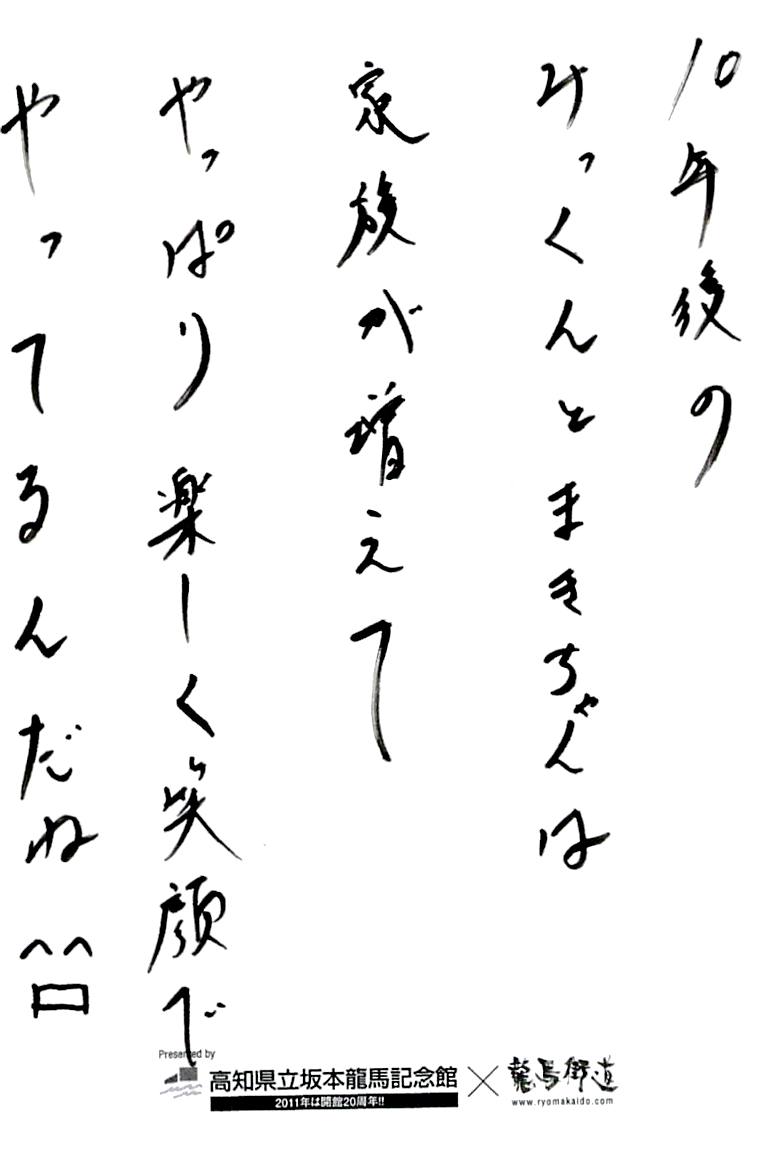 10年後の
みっくんとまきちゃんは
家族が増えて
やっぱり楽しく笑顔で
やってるんだね ^^
Presented by
高知県立坂本龍馬記念館 × 龍馬街道
2011年は開館20周年!!
www.ryomakaido.com